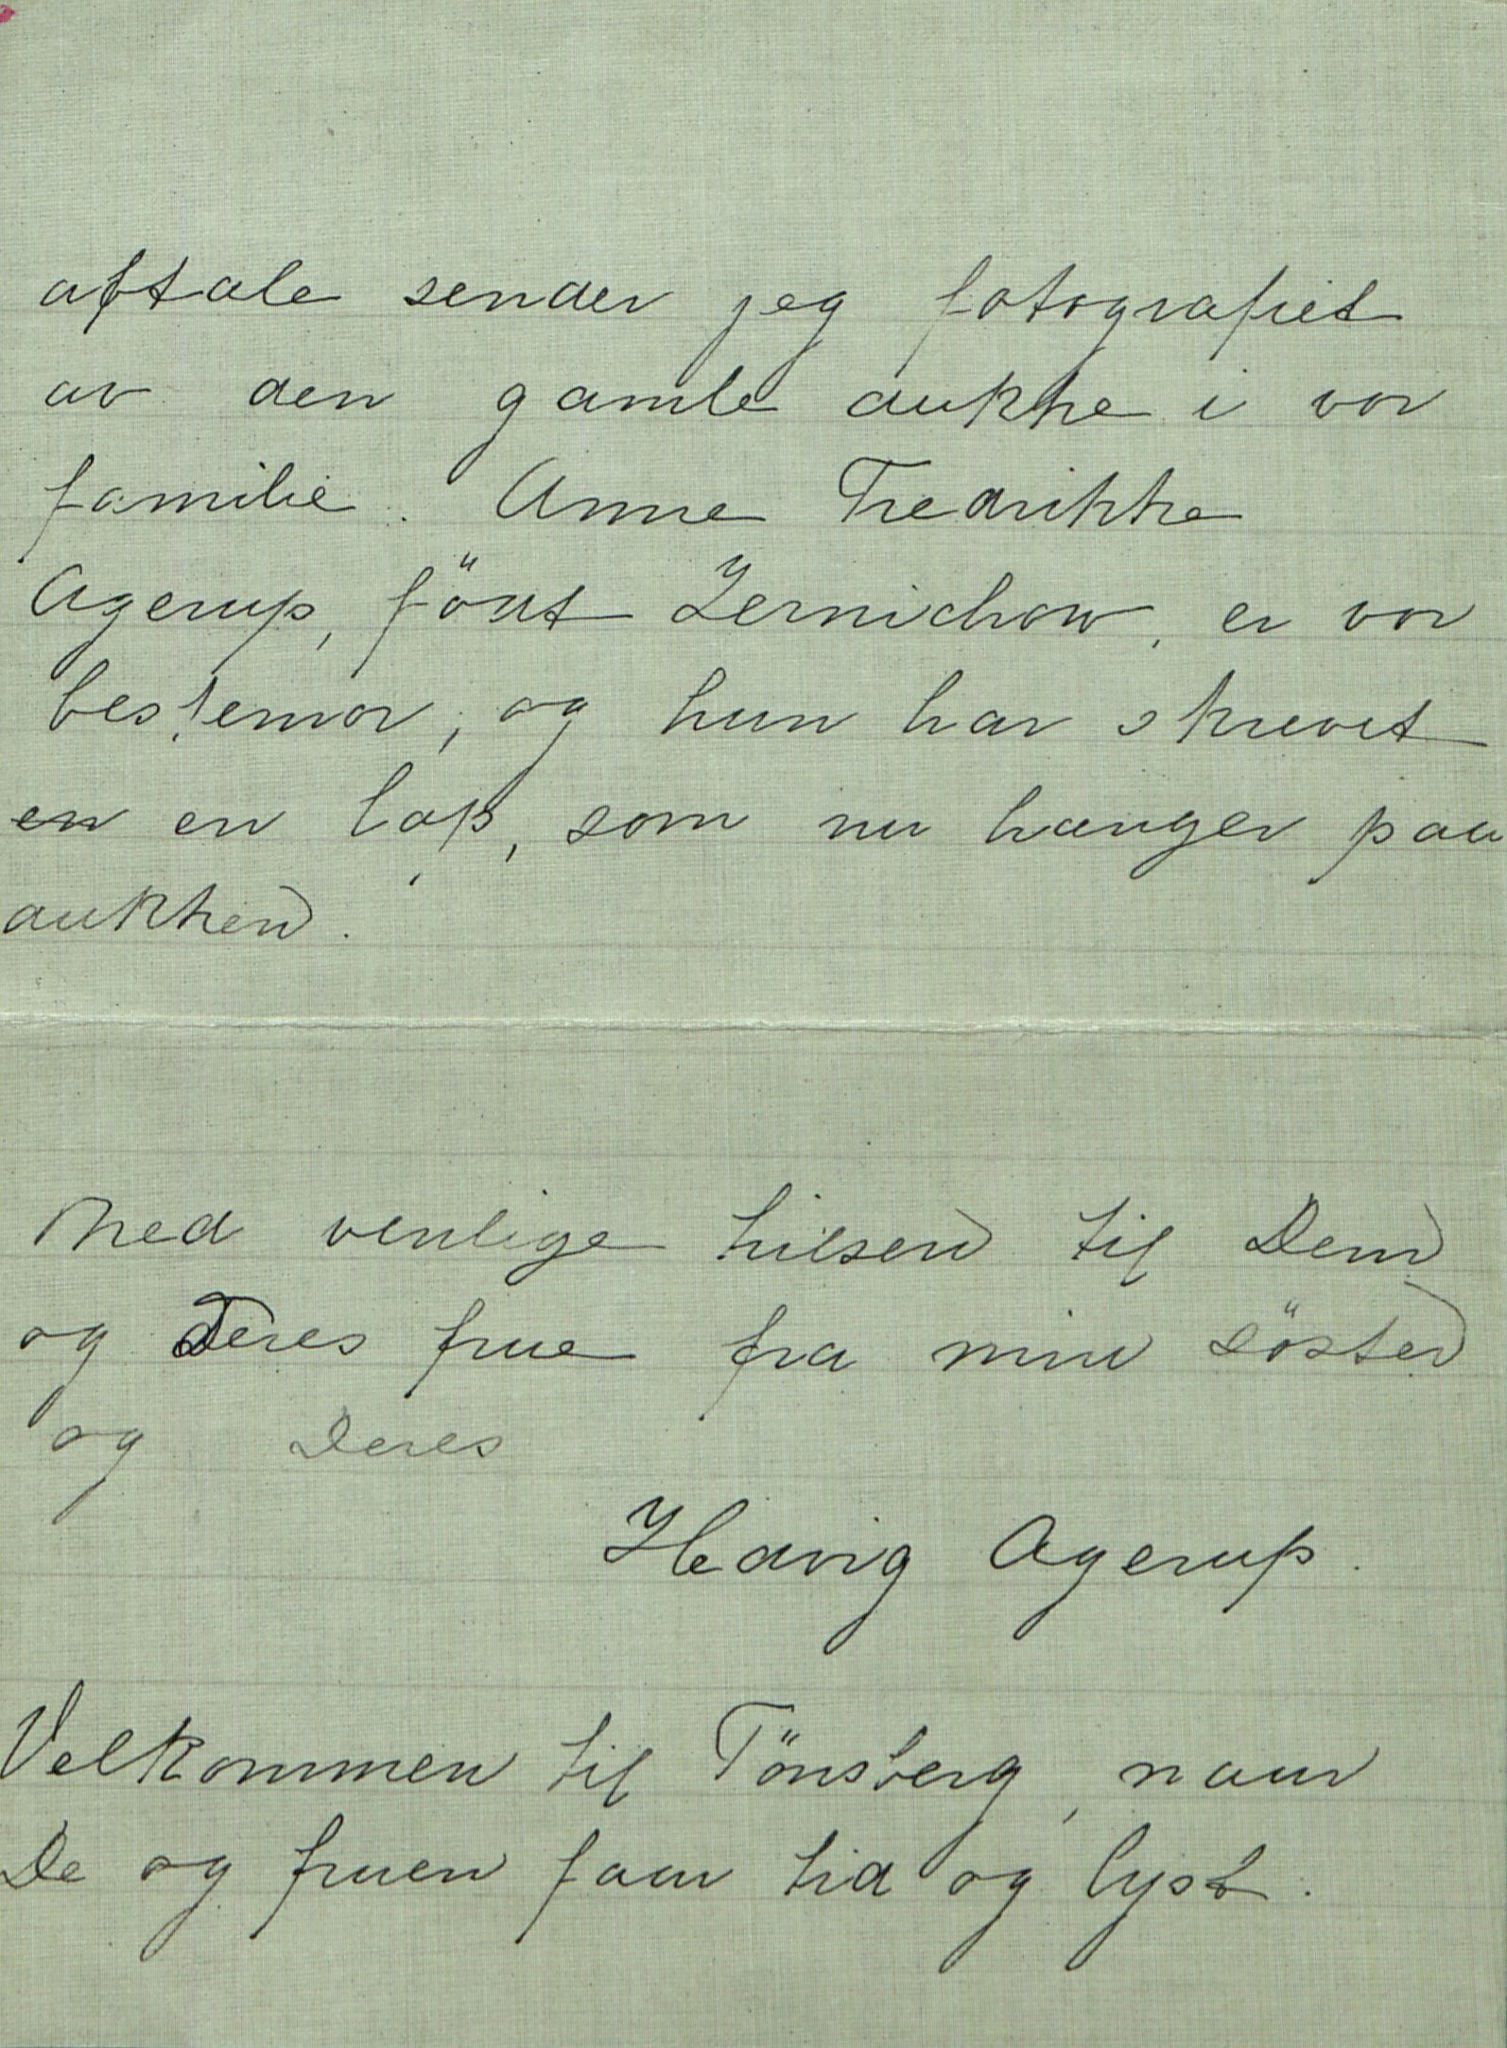 aftale sender jeg fotografiet
av den gamle dukke i vor
familie. Anne Fredrikke
Agerup, födt Jernichow, er vor
bestemor, og hun har skrevet
en en lap, som nu hænger paa
dukken.
Med venlige hilsen til Dem
og Deres frue fra min söster
og Deres
Hedvig Agerup.
Velkommen til Tönsberg, naar
De og fruen faar tid og lyst.